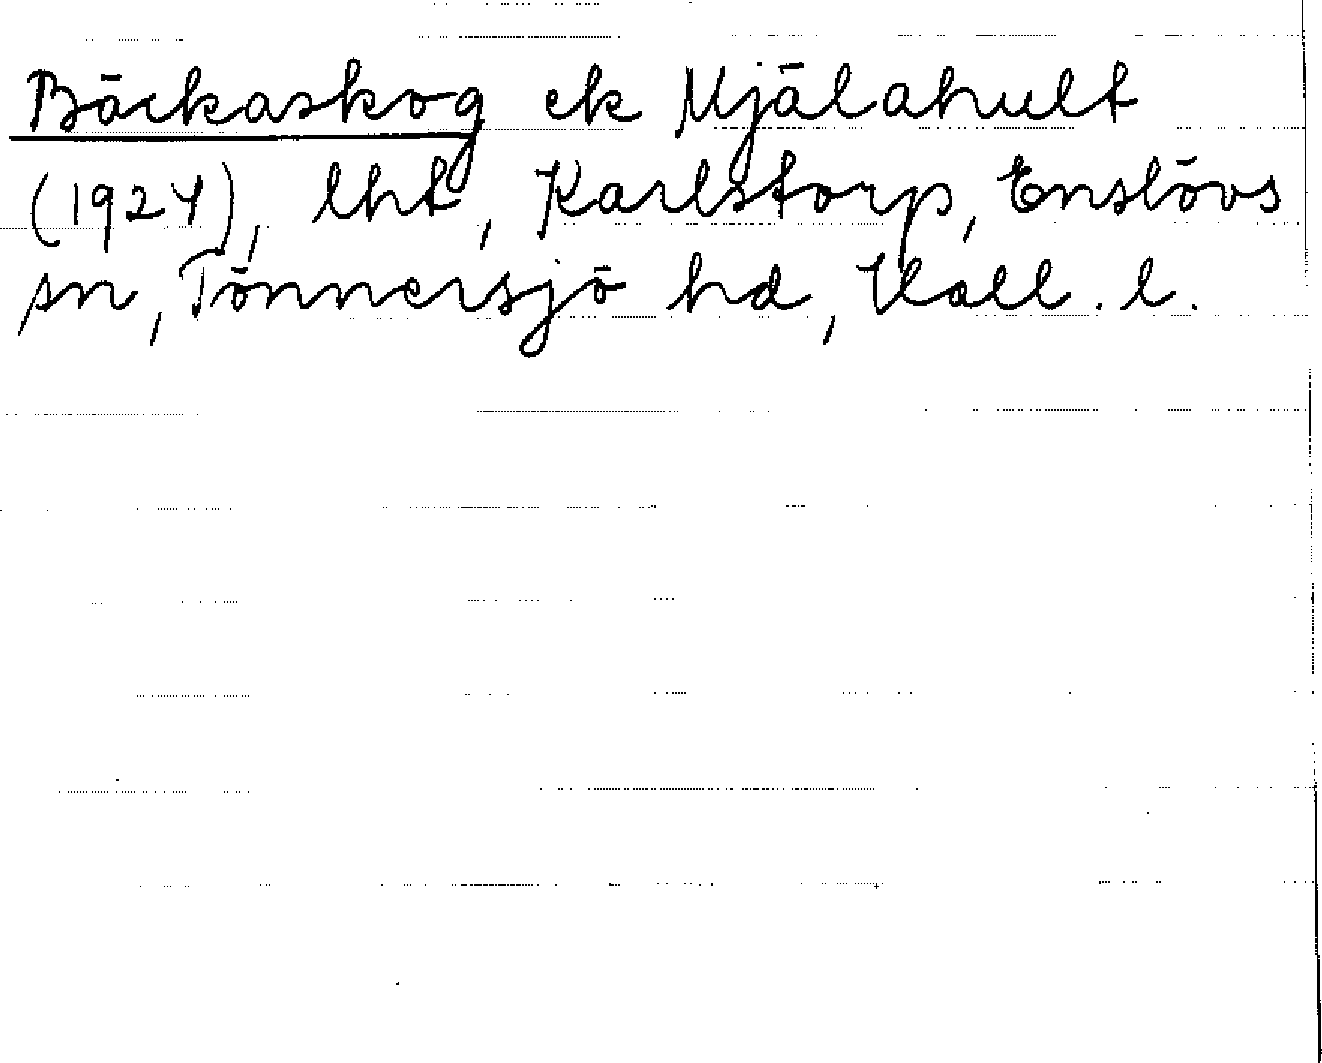 Bäckaskog ek Mjälahult
(1924), lht, Karlstorp, Enslövs
sn, Tönnersjö hd, Hall. l.